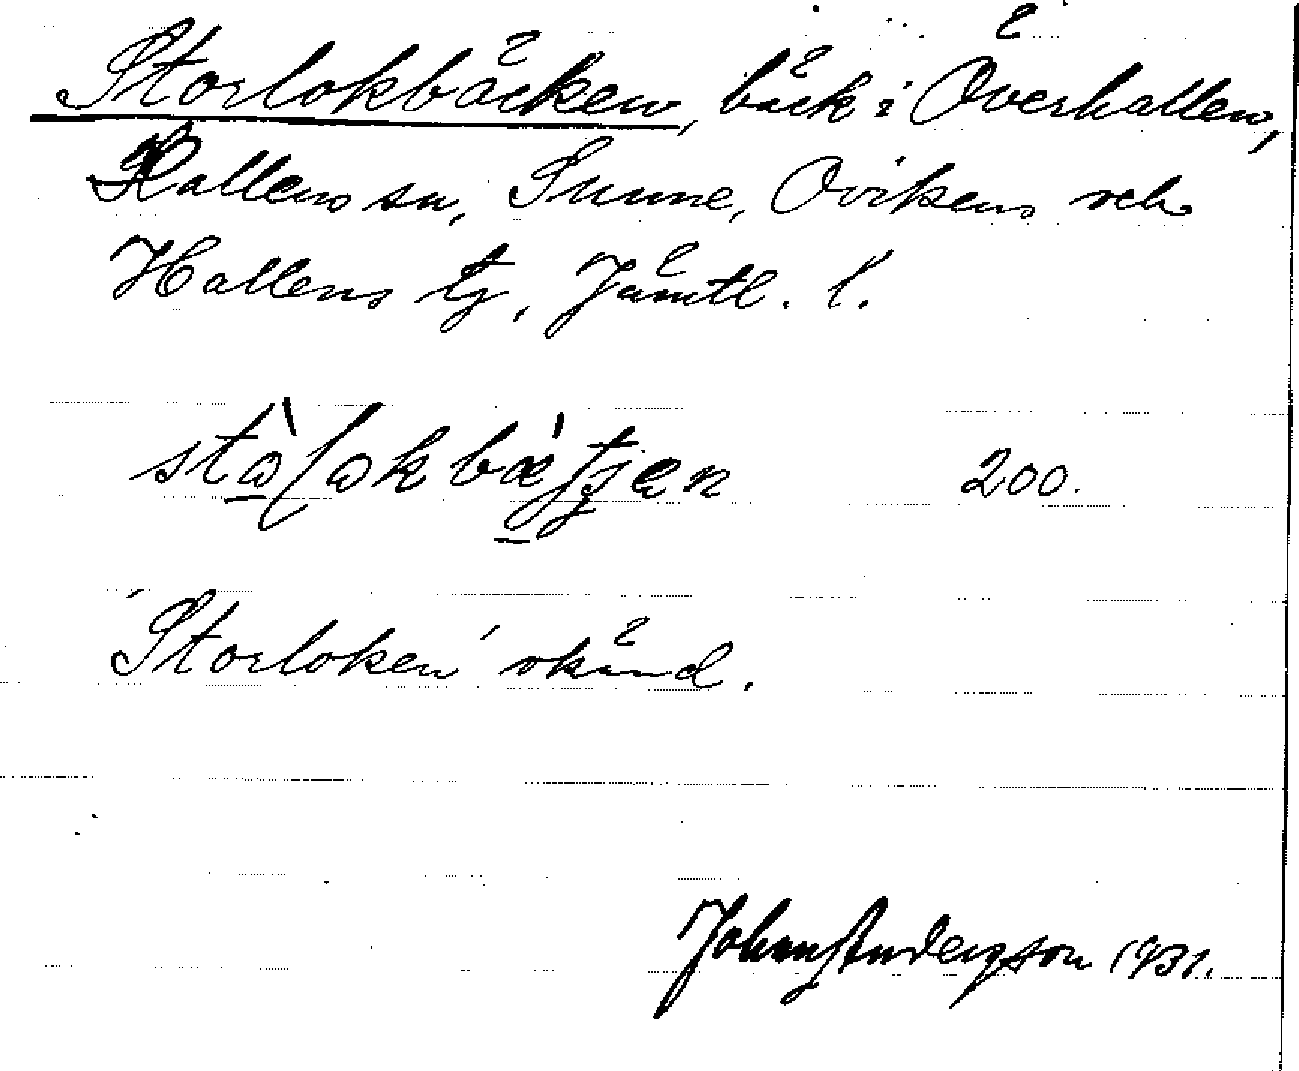 Storlokbäcken, bäck i Överhallen,
Hallens sn, Sunne, Ovikens och
Hallens tg, Jämtl. l.
200.
"Storloken" okänd.
John Anderzson 1931.